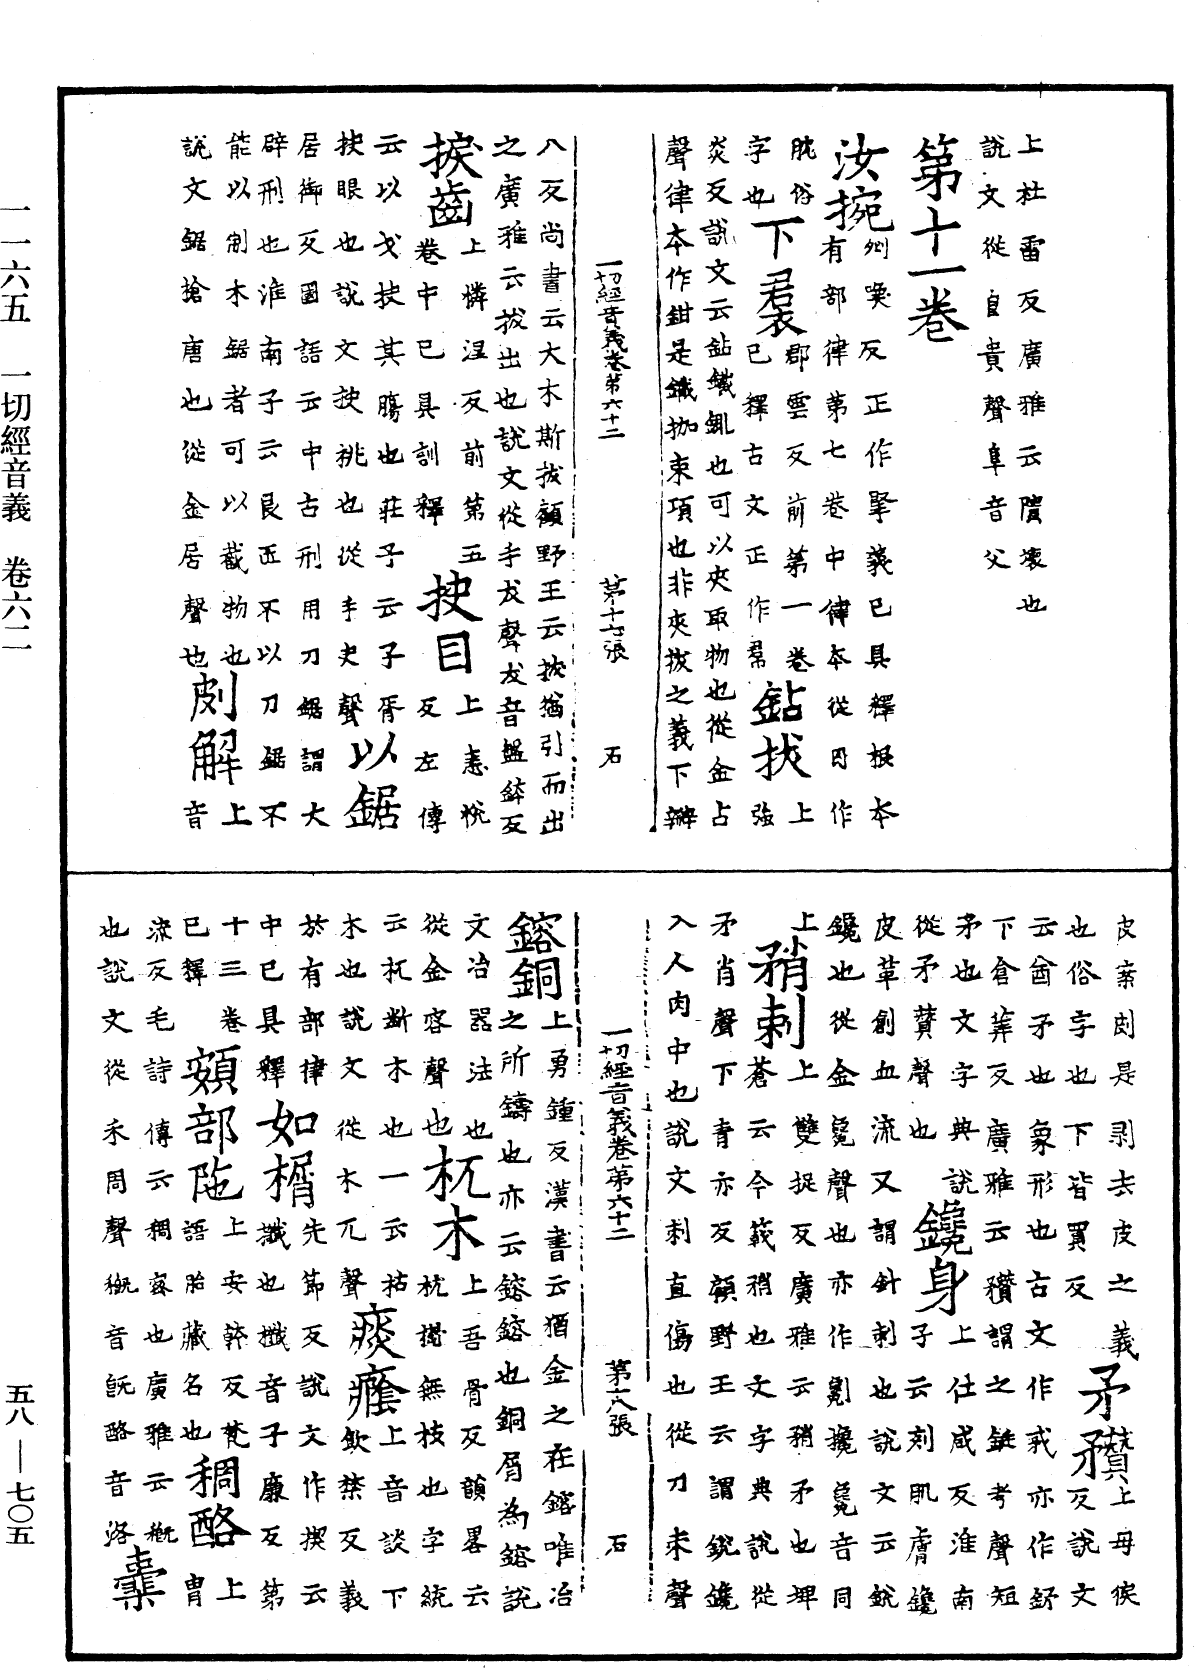 一一六五　一切經音義　卷六二
五八—七〇五
上杜雷反廣雅云隤壞也
說文從𨸏貴聲阜音父
第十一卷
汝捥
喚反正作掔義已具釋根本
有部律第七卷中律本從肉作
腕俗
字也
下裠
郡雲反前第一卷
已釋古文正作帬
鉆拔
上
強
炎反說文云鉆鐵銸也可以夾取物也從金占
聲律本作鉗是鐵枷束項也非夾拔之義下辦
一切經音義卷第六十二　第十七張　石
八反尚書云大木斯拔顧野王云拔猶引而出
之廣雅云拔出也說文從手犮聲犮音盤鉢反
捩齒
上憐涅反前第五
卷中已具訓釋
抉目
上恚梲
反左傳
云以戈抉其腸也莊子云子胥
抉眼也說文抉挑也從手夬聲
以鋸
居御反國語云中古刑用刀鋸謂大
辟刑也淮南子云良匠不以刀鋸不
能以制木鋸者可以截物也
說文鋸槍唐也從金居聲也
剫解
上
音
皮案剫是剥去皮之義
也俗字也下皆買反
矛䂎
上母侯
反說文
云酋矛也象形也古文作𢦧亦作釫
下倉筭反廣雅云䂎謂之鋋考聲短
矛也文字典說
從矛贊聲也
鑱身
上仕咸反淮南
子云刻肌膚鑱
皮革創血流又謂針刺也說文云銳
鑱也從金毚聲也亦作劖攙毚音同
上
矟刺
上雙捉反廣雅云矟矛也埤
蒼云今䂎矟也文字典說從
矛肖聲下青亦反顧野王云謂銳鑱
入人肉中也說文刺直傷也從刀朿聲
一切經音義卷第六十二　第十八張　石
鎔銅
上勇鍾反漢書云猶金之在鎔唯冶
之所鑄也亦云鎔鎔也銅屑為鎔說
文冶器法也
從金容聲也
杌木
上吾骨反韻畧云
杌撅無枝也字統
云杌斷木也一云枯
木也說文從木兀聲
痰癊
上音談下
飲禁反義
於有部律
中已具釋
如楈
先節反說文作揳云
䥫也櫼音子廉反第
十三卷
已釋
頞部陁
上安幹反梵
語胎藏名也
稠酪
上
胄
流反毛詩傳云稠密也廣雅云概
也說文從禾周聲概音旣酪音洛
橐